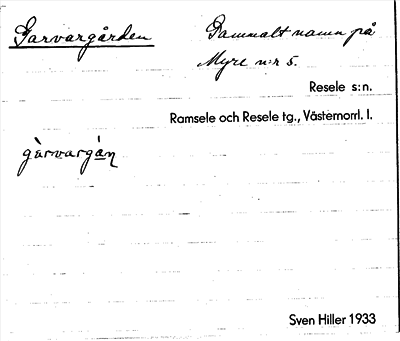 Garvargården
Gammalt namn på
Myre n:r 5.
Resele s:n.
Ramsele och Resele tg., Västernorrl. l.
gàrvargán
Sven Hiller 1933